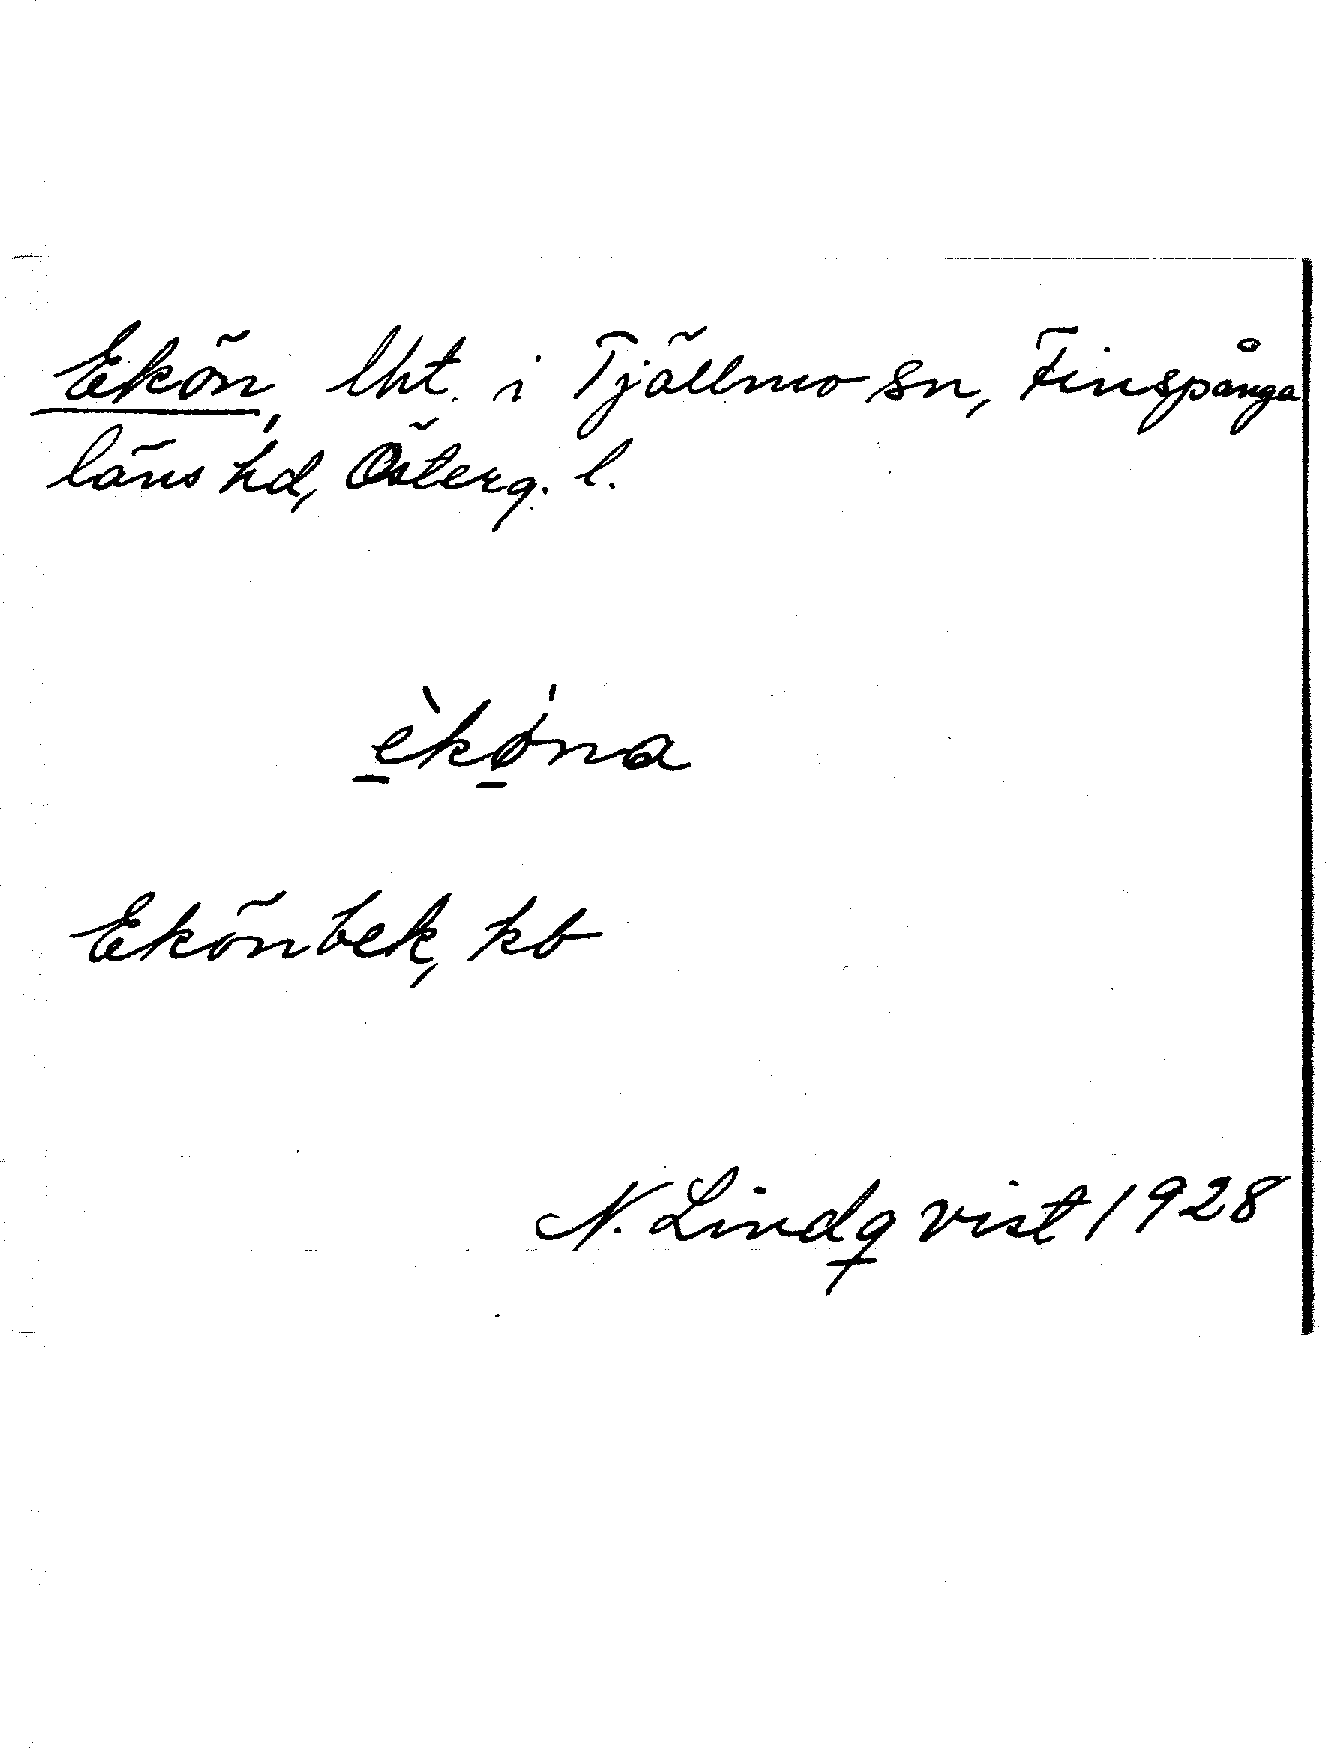 Ekön, lht. i Tjällmo sn, Finspånga
läns hd, Österg. l.
èkǿna
Ekön bek, kb
N. Lindqvist 1928